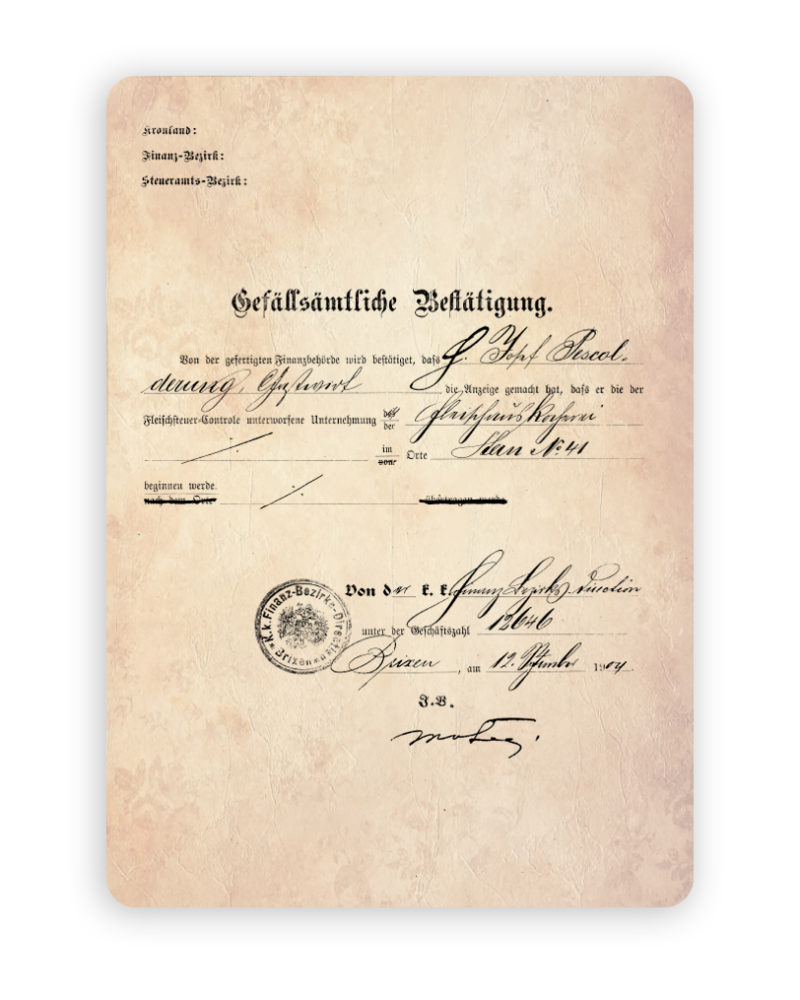 Kronland:
Finanz-Bezirk:
Steueramts-Bezirk:
Gefällsämtliche Bestätigung.
Von der gefertigten Finanzbehörde wird bestätiget, dass H. Josef Pescol-
derung, Gastwirt die Anzeige gemacht hat, dass er die der
Fleischsteuer-Controle unterworfene Unternehmung des der Fleischauskocherei
im von Orte No 41
beginnen werde.
nach dem Orte übertragen werde
Von der k. k. Finanz Bezirks-Direction
unter der Geschäftszahl 12646
Brixen, am 12. September 1904.
I.V.
K.k. Finanz-Bezirks-Direction
Brixen